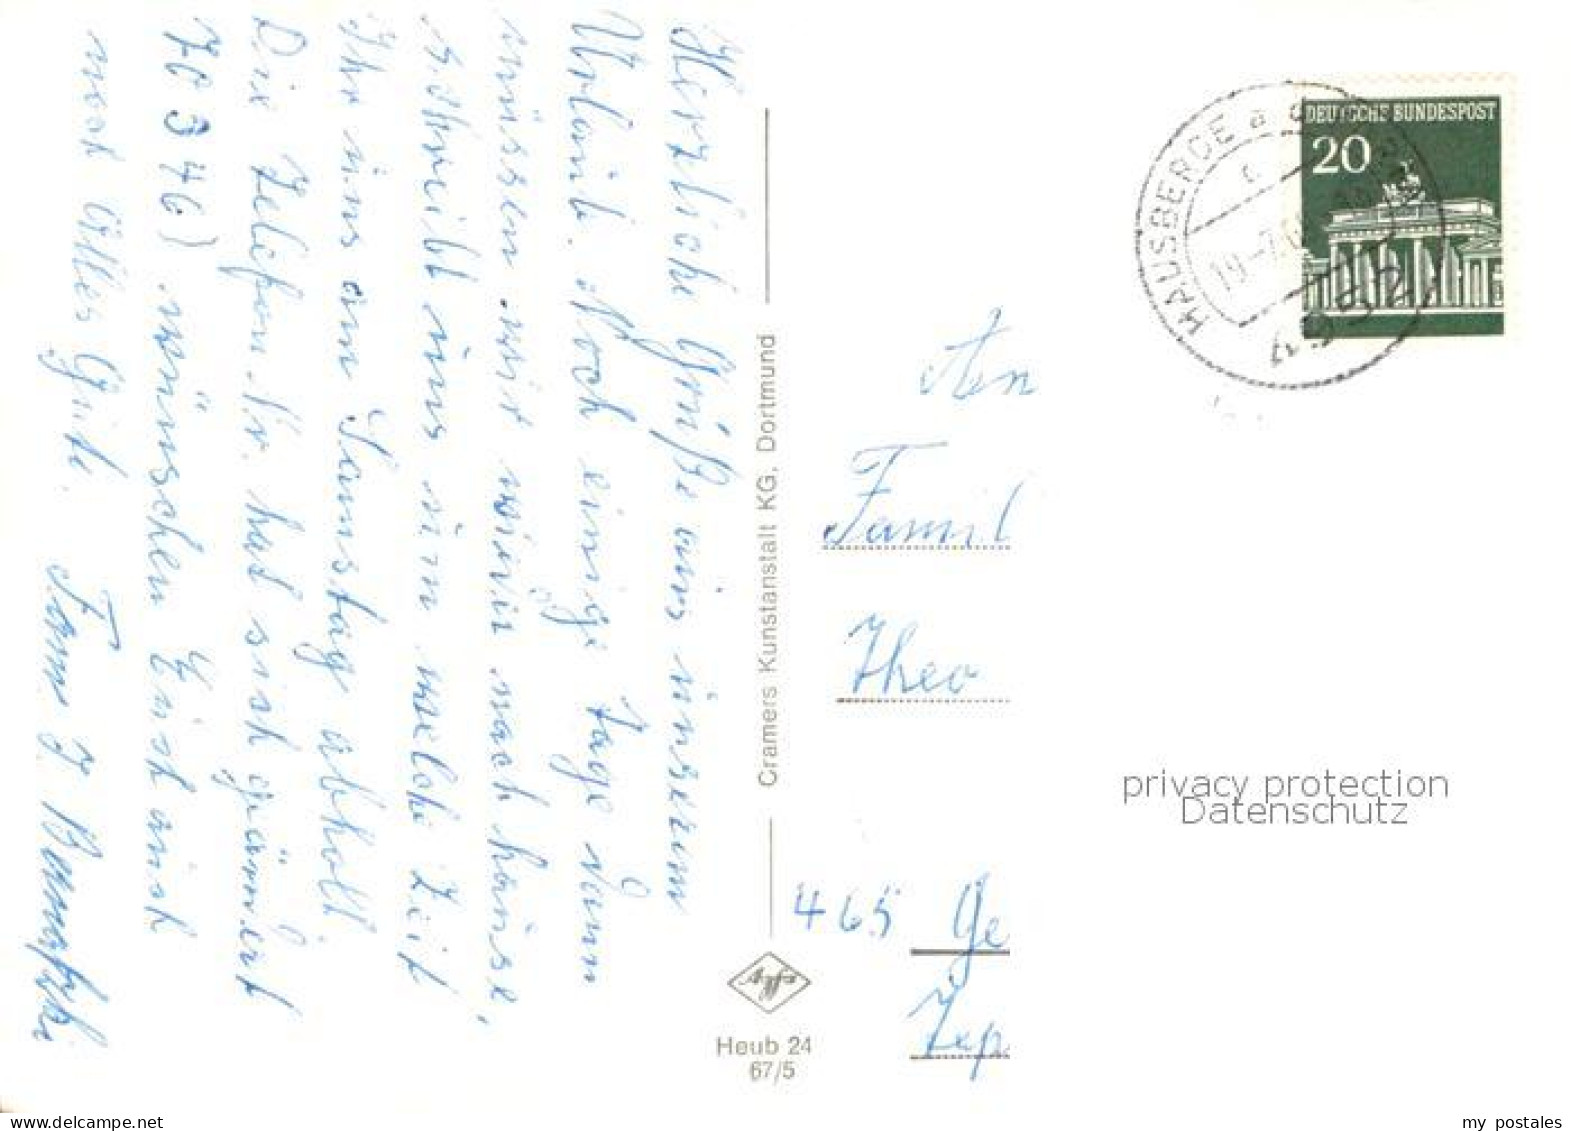 Herzliche Grüße aus unserem
Urlaub. Noch einige Tage dann
müssen wir wieder nach hause,
schreibt uns um welche Zeit
Ihr uns am Samstag abholt.
Die Telefon Nr. hat sich geändert
70376) wünschen Euch auch
noch alles Gute. Fam. J.
Cramers Kunstanstalt KG. Dortmund
Agfa
Heub 24
67/5
DEUTSCHE BUNDESPOST
20
HAUSBERGE a d
4952
An
Famil
Theo
465 Ge
Zep
privacy protection
Datenschutz
my_postales
www.delcampe.net